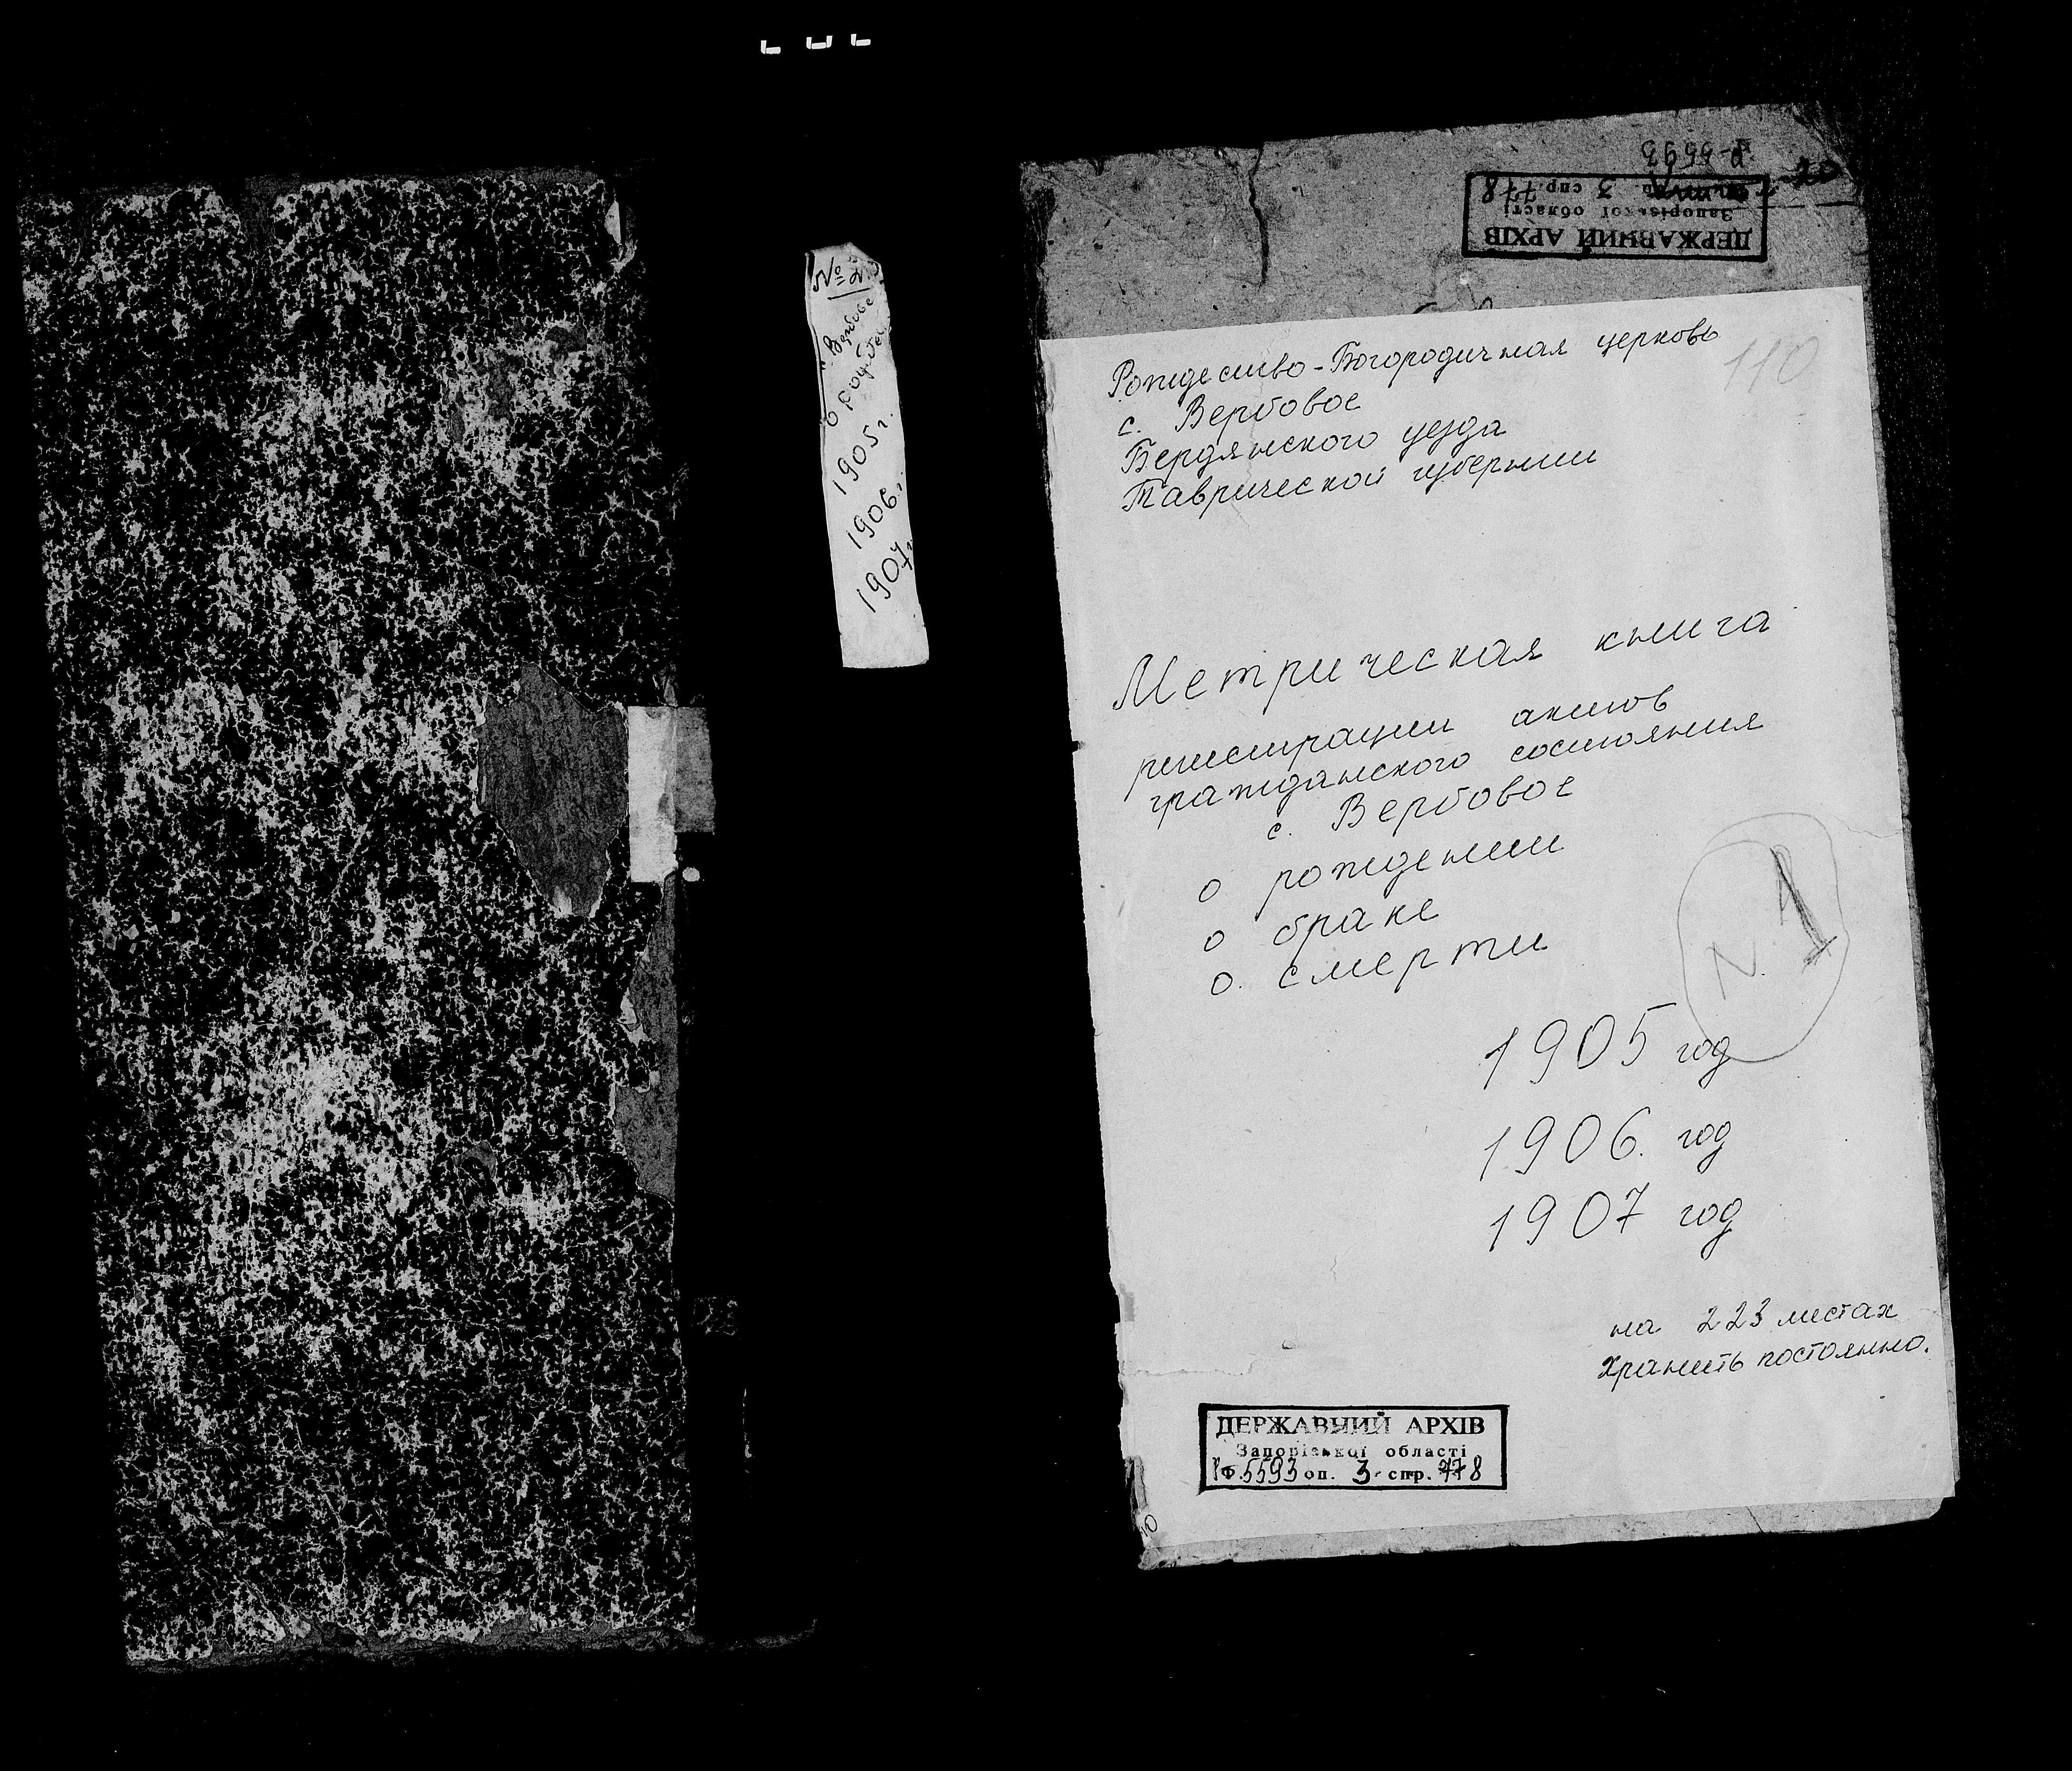 № 2
Вербовое
1905 г.
1906 г.
1907 г.
Р-5593
3 спр. 778
Запорізької області
ДЕРЖАВНИЙ АРХІВ
110
Рождество-Богородичная церковь
с. Вербовое
Бердянского уезда
Таврической губернии
Метрическая книга
регистрации актов
гражданского состояния
с. Вербовое
о рождении
о браке
о смерти
N. 1
1905 год
1906. год
1907 год
на 223 листах
Хранить постоянно.
ДЕРЖАВНИЙ АРХІВ
Запорізької області
Ф. 5593 оп. 3 спр. 778